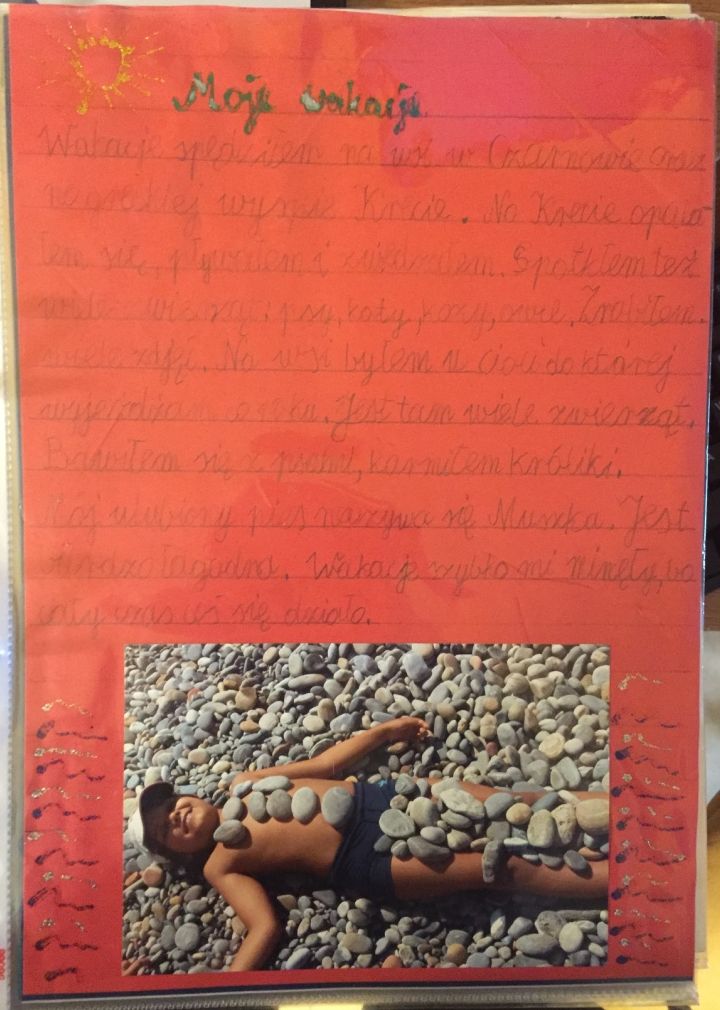 Moje wakacje
Wakacje spędziłem na wsi w Czarnowie oraz
na greckiej wyspie Krecie. Na Krecie opala-
łem się, pływałem i zwiedzałem. Spotkłem też
wiele zwierząt: psy, koty, kozy, owce. Zrobiłem
wiele zdjęć. Na wsi byłem u cioci do której
wyjeżdżam co roku. Jest tam wiele zwierząt.
Bawiłem się z psami, karmiłem króliki.
Mój ulubiony pies nazywa się Muszka. Jest
bardzo łagodna. Wakacje szybko mi minęły, bo
cały czas coś się działo.